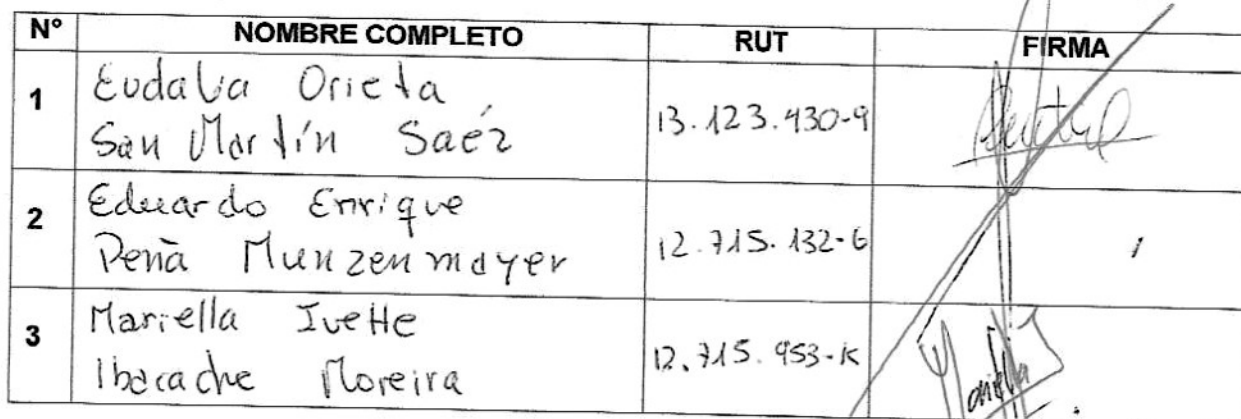 N° NOMBRE COMPLETO RUT FIRMA
1 Eudalia Orieta
San Martín Saéz 13.123.430-9
2 Eduardo Enrique
Peña Munzenmayer 12.715.132-6
3 Mariella Ivette
Ibacache Moreira 12.715.953-K Mariella